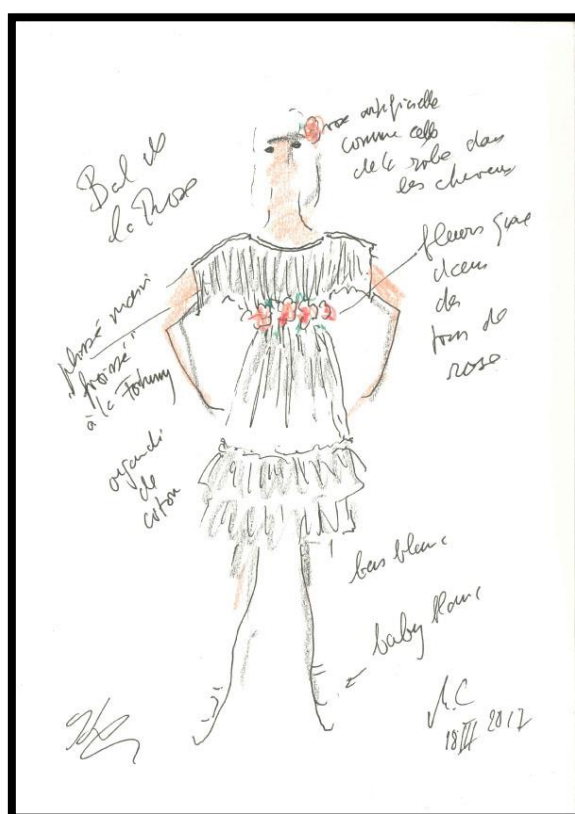 Bal de
la Rose
rose artificielle
comme celle
de la robe dans
les cheveux
fleurs
dans
des
tons de
rose
plissé main
"froissé"
à la Fortuny
organdi
de
coton
bas blanc
baby blanc
M.C
18 III 2017